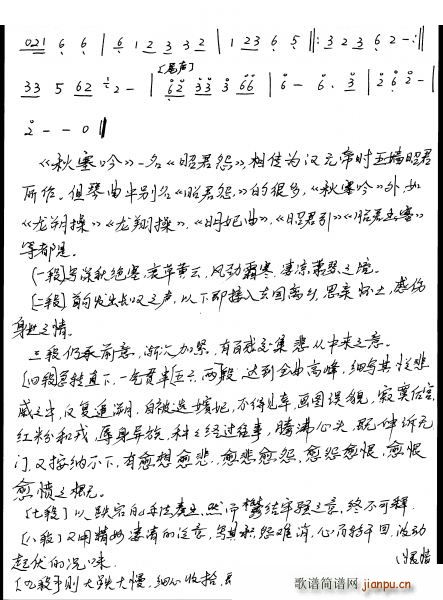 021 6 6 | 6 1 2 3 3 2 | 1 2 3 6 5 ‖: 3 2 3 6 2 - :‖
[尾声]
3 3 5 6 2 2 - | 6 2 3 3 3 6 6 | 6 - 6. 3 | 2 6 2 - |
2 - - 0 ‖
《秋塞吟》一名《昭君怨》，相传为汉元帝时王嫱昭君
所作。但琴曲中别名《昭君怨》的很多，《秋塞吟》外，如
《龙朔操》《龙翔操》，《明妃曲》，《昭君引》《昭君出塞》
等都是。
(一段)写深秋绝塞，衰草黄云，风劲霜寒，凄凉萧瑟之境。
(二段)首句发出长叹之声，以下即接入去国离乡，思亲怀土，感伤
身世之情。
三段仍承前意，渐次加紧，有百感交集悲从中来之意。
(四段)急转直下，一气贯串(五六)两段 达到全曲高峰，细
之中，反复追溯，自被选嫔妃，不得见幸，画图误貌，寂寞
红粉和戎，辱身异族，种种经过往事，腾沸心头，既伸诉无
门，又按纳不下，有愈想愈悲，愈悲愈怨，愈怨愈恨，愈恨
愈愤之概。
(七段)以跌宕的手法表出，然
(八段)又用精妙凄清的泛音，写其积怨难消，心
起伏的况味。
(九段)则大跌大慢，细心收拾，
歌谱简谱网
jianpu.cn